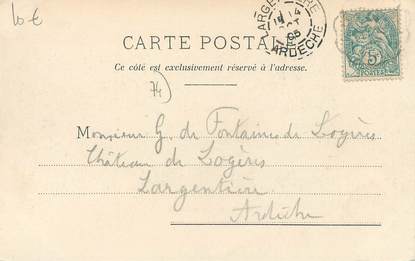 10 €
LARGENTIÈRE
14
05
ARDÈCHE
5
POSTES
CARTE POSTALE
Ce côté est exclusivement réservé à l'adresse.
74)
Monsieur G. de Fontaines de Logères
Château de Logères
Largentière
Ardèche